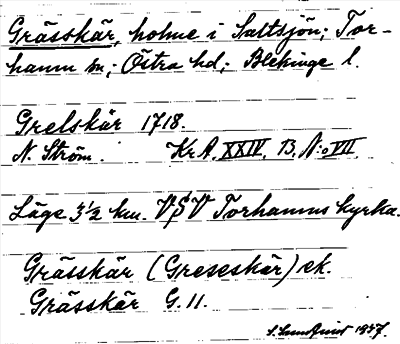 Grässkär, holme i Saltsjön; Tor-
hamn sn; Östra hd; Blekinge l.
Grelskär 1718.
N. Ström. Kr A. XXIV. 13. N:o VII.
Läge 3½ km. VSV Torhamns kyrka.
Grässkär (Greseskär) ek.
Grässkär G. 11.
1937.